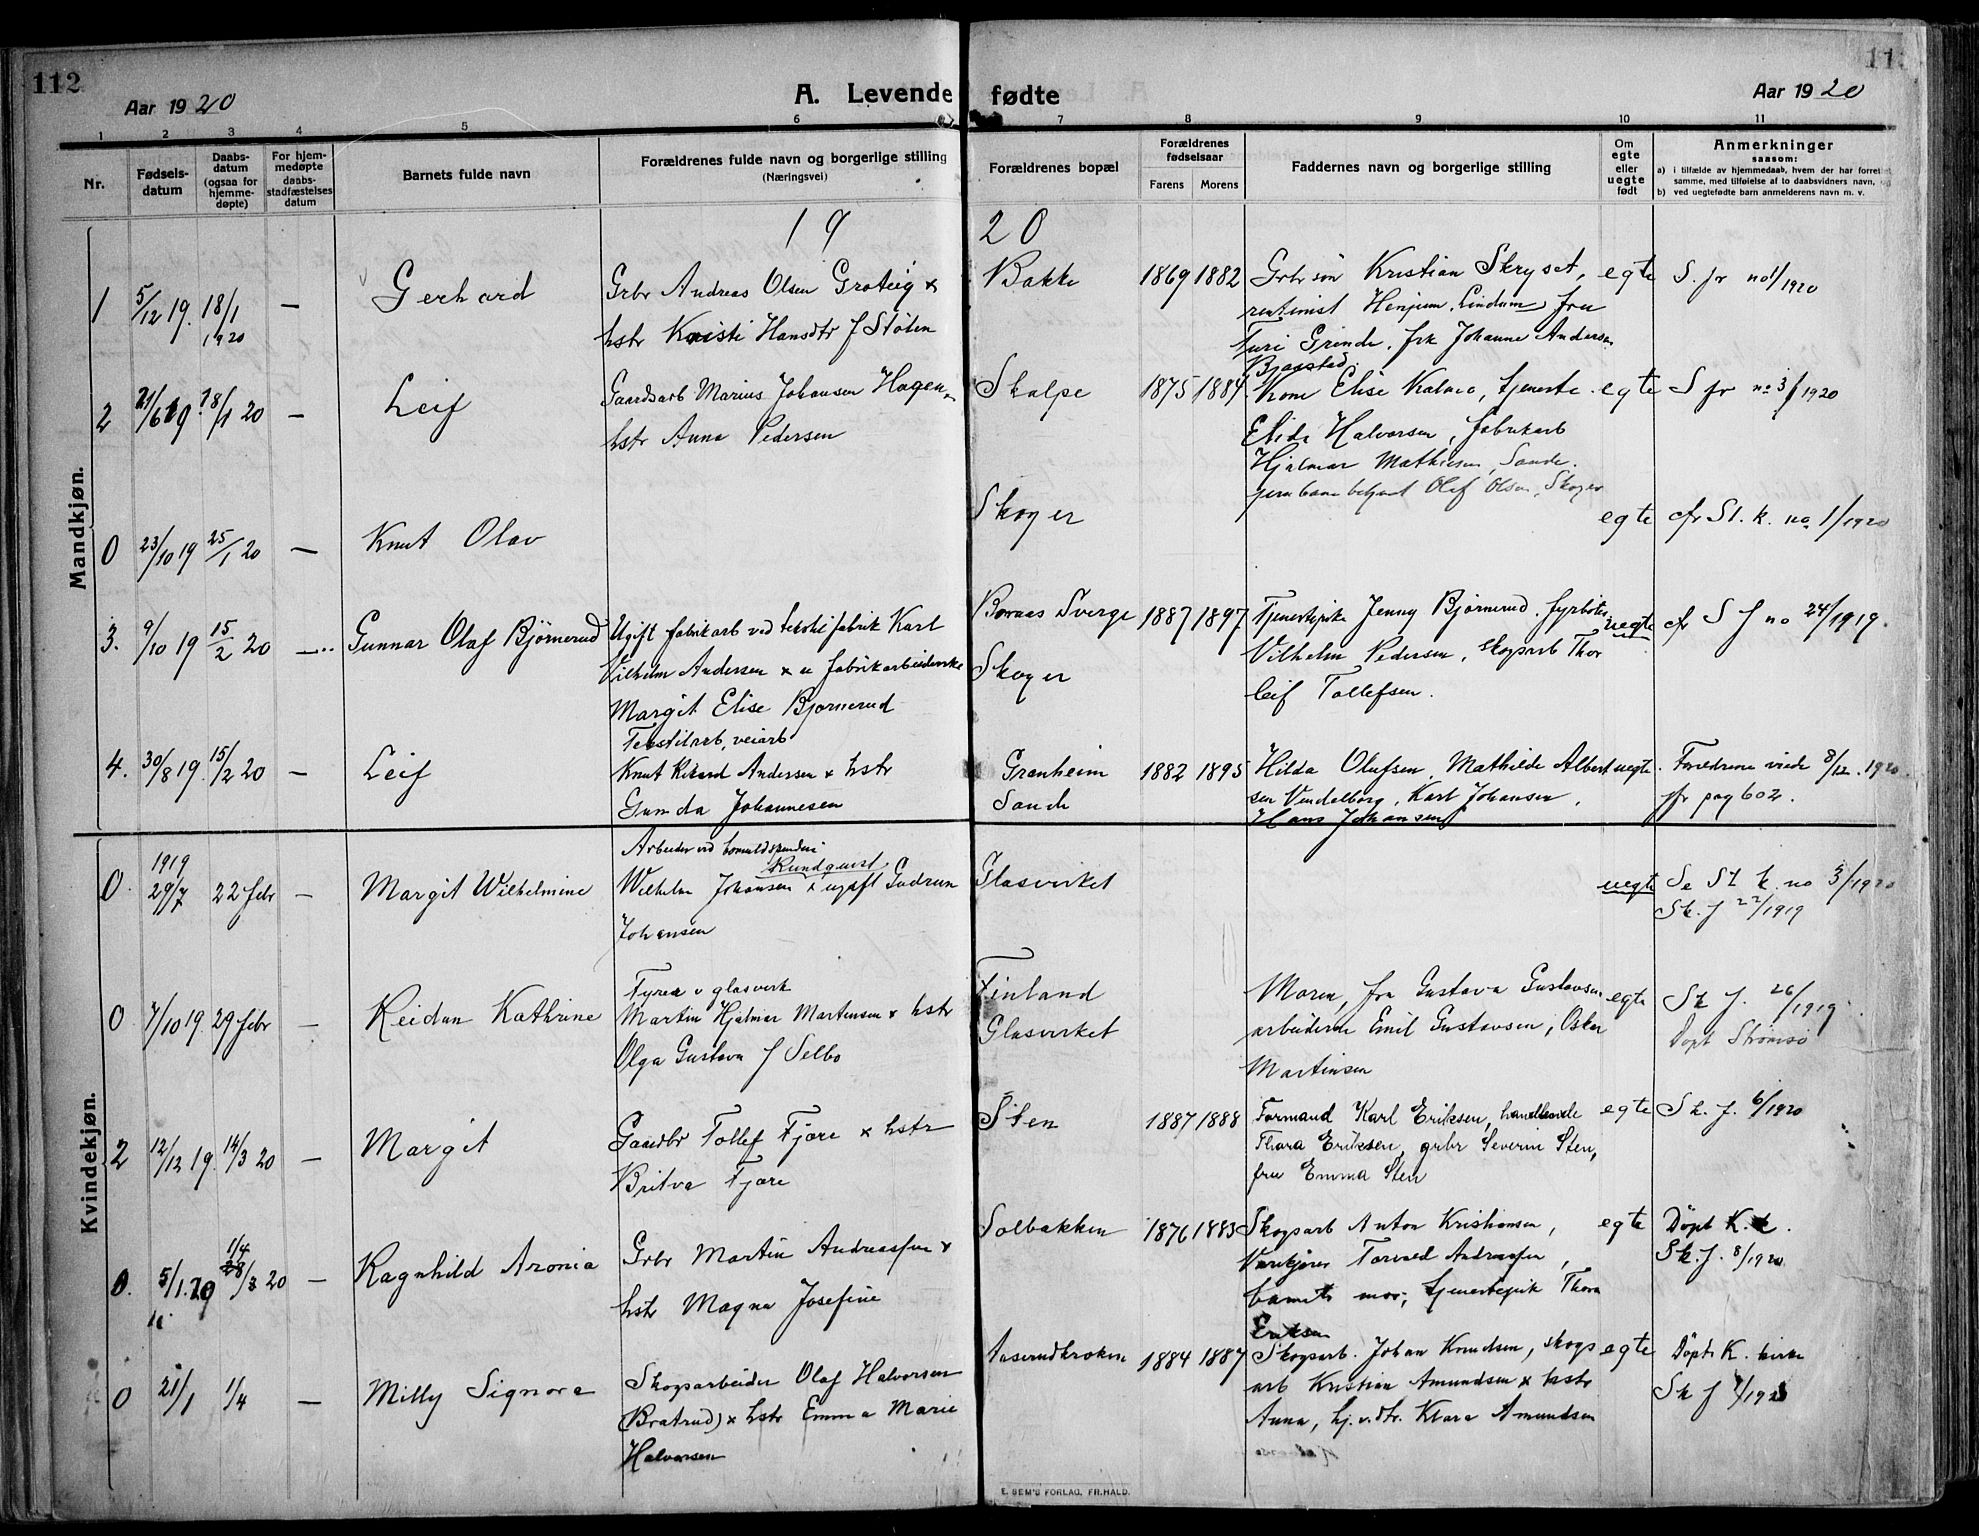 112
Aar 1920
A. Levende fødte
Aar 1920
1 2 3 4 5 6 7 8 9 10 11
Nr.
Fødsels-
datum
Daabs-
datum
(ogsaa for
hjemme-
døpte)
For hjem-
medøpte
daabs-
stadfæstelses
datum
Barnets fulde navn
Forældrenes fulde navn og borgerlige stilling
(Næringsvei)
Forældrenes bopæl
Forældrenes
fødselsaar
Farens
Morens
Faddernes navn og borgerlige stilling
Om
egte
eller
uegte
født
Anmerkninger
saasom:
a) i tilfælde av hjemmedaab, hvem der har forrettet
samme, med tilføielse af to daabsvidners navn, og
b) ved uegtefødte barn anmelderens navn m. v.
1920
Mandkjøn.
1 5/12 19. 18/1 1920 — Gerhard
Grbr Andreas Olsen Groteig x
hstr Kristi Hansdtr f Støten
Bakke 1869 1882
Grbr søn Kristian Skryset,
rentenist Henjum, Lindum, fru
Turi Grinde, frk Johanne Andersen
Bjaastad.
egte S. fr no 1/1920
2 21/6 19. 18/1 20 — Leif
Gaardsarb Marius Johansen Hagen,
hstr Anna Pedersen
Skalpe 1875 1884
Kone Elise Kalna, tjeneste
Elida Halvorsen, fabrikarb
Hjalmar Mathiesen, Sande.
jernbanebetjent Olaf Olsen, Skoger
egte S fr no 3/1920
0 23/10 19 25/1 20 — Knut Olav
Skoger
egte cfr St. k. no 1/1920
3. 9/10 19 15/2 20 — Gunnar Olaf Bjørnerud
Ugift fabrikarb ved tekstilfabrik Karl
Vilhelm Andersen x u fabrikarbeiderske
Margit Elise Bjørnerud
Boraas Sverge
Skoger
1887 1897
Tjenestepike Jenny Bjørnerud, fyrbøter
Vilhelm Pedersen, skogarb Thor
leif Tollefsen.
uegte cfr S f no 24/1919.
4. 30/8 19. 15/2 20 — Leif
Tekstilarb, veiarb
Knut Rikard Andersen x hstr
Gunda Johannesen
Granheim
Sande
1882 1895
Hilda Olufsen, Mathilde Albert
sen Vendelborg, Karl Johansen,
Hans Johansen
uegte. Foreldrene viede 8/12. 1920.
cfr pag 602.
Kvindekjøn.
0. 1919 29/7 22 febr — Margit Wilhelmine
Arbeider ved bomuldspinderi
Rundquist
Wilhelm Johansen x ugift Gudrun
Johansen
Glasvirket
uegte Se St k. no 3/1920
Sk. f 22/1919
0 7/10 19 29 febr — Reidun Kathrine
Fyrer v glasverk
Martin Hjalmar Martensen x hstr
Olga Gustava f Selbo
Finland
Glasvirket
Moren, fru Gustava Gustavsen
arbeiderne Emil Gustavsen, Oskar
Martinsen
egte Sk f. 26/1919
Døpt Strømsø
2 12/12 19. 14/3 20 — Margit
Gaardbr Tollef Fjære x hstr
Britva Fjære
Sten 1887 1888
Formand Karl Eriksen, handlende
Thora Eriksen, grbr Severin Sten,
fru Emma Sten
egte Sk. f. 6/1920
0. 5/1. 20 1/4 28/3 20 — Ragnhild Aronia
Grbr Martin Andreassen x
hstr Magna Josefine
Solbakken 1876 1883
Skogsarb Anton Kristiansen,
Varekjører Torvald Andreassen,
barnets mor, tjenestepik Thora
Eriksen
egte Døpt K. k.
Sk. f. 8/1920
0 21/1 1/4 — Milly Signora
Skogsarbeider Olaf Halvorsen
(Bratrud) x hstr Emma Marie
Halvorsen
Aaserudkroken 1884 1887
Skogsarb. Johan Knudsen, skogs
arb Kristian Amundsen x hstr
Anna, hj. v. dtr. Klara Amundsen
egte Døpt K. kirke
Sk f
E. SEM'S FORLAG, FR.HALD.